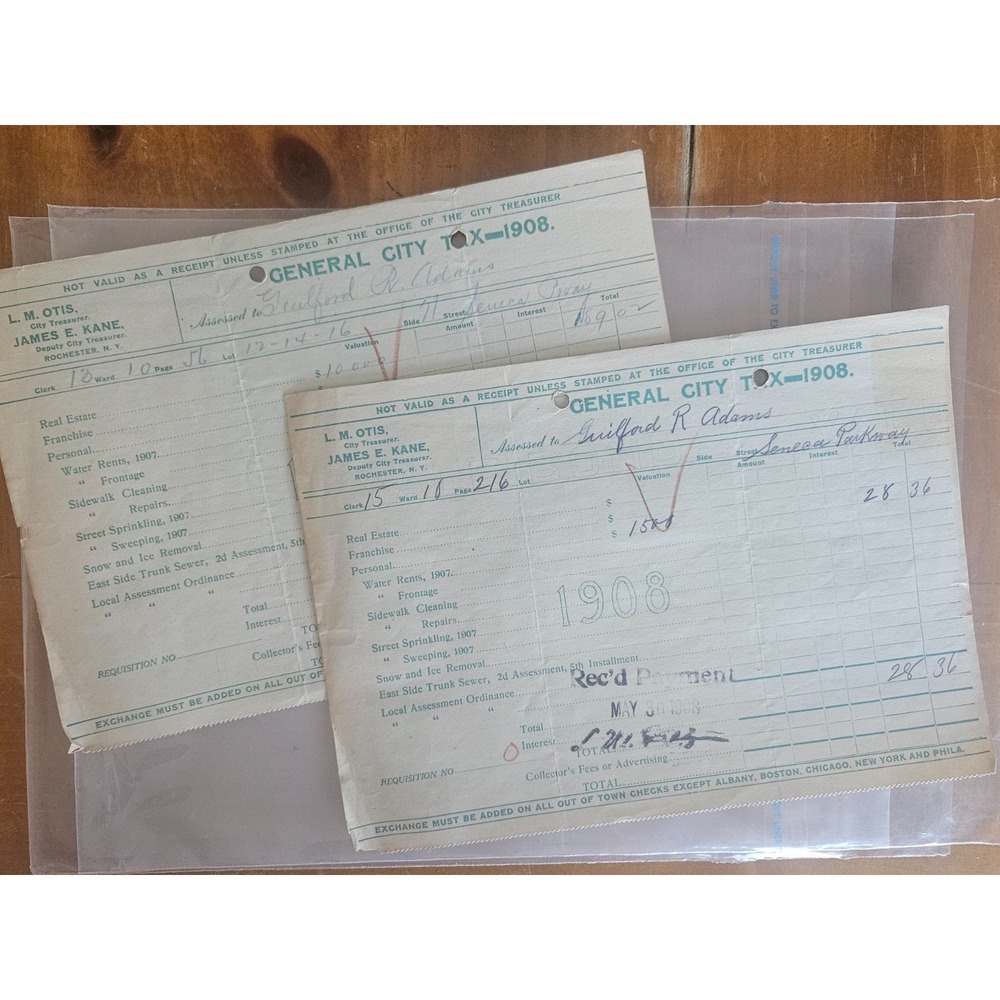 NOT VALID AS A RECEIPT UNLESS STAMPED AT THE OFFICE OF THE CITY TREASURER
GENERAL CITY TAX—1908.
L. M. OTIS,
City Treasurer.
JAMES E. KANE,
Deputy City Treasurer.
ROCHESTER, N. Y.
Assessed to Guilford R Adams
Side N Street Seneca Pway
Clerk 13 Ward 10 Page 56 Lot 12-14-16
Valuation Amount Interest Total
Real Estate $10000 189 02
Franchise
Personal
Water Rents, 1907
" Frontage
Sidewalk Cleaning
" Repairs
Street Sprinkling, 1907
" Sweeping, 1907
Snow and Ice Removal
East Side Trunk Sewer, 2d Assessment, 5th
Local Assessment Ordinance
" " "
Total
Interest
TO
REQUISITION NO
Collector's Fe
TO
EXCHANGE MUST BE ADDED ON ALL OUT OF
NOT VALID AS A RECEIPT UNLESS STAMPED AT THE OFFICE OF THE CITY TREASURER
GENERAL CITY TAX—1908.
L. M. OTIS,
City Treasurer.
JAMES E. KANE,
Deputy City Treasurer.
ROCHESTER, N. Y.
Assessed to Guilford R Adams
Side Street Seneca Parkway
Clerk 15 Ward 10 Page 216 Lot
Valuation Amount Interest Total
Real Estate $
Franchise $
Personal $ 1500 28 36
Water Rents, 1907
" Frontage
Sidewalk Cleaning
" Repairs
Street Sprinkling, 1907
" Sweeping, 1907
Snow and Ice Removal
East Side Trunk Sewer, 2d Assessment, 5th Installment
Local Assessment Ordinance
" " "
1908
Rec'd Payment
MAY 30 1908
Total 28 36
Interest
TOTAL
REQUISITION NO
Collector's Fees or Advertising
TOTAL
EXCHANGE MUST BE ADDED ON ALL OUT OF TOWN CHECKS EXCEPT ALBANY, BOSTON, CHICAGO, NEW YORK AND PHILA.